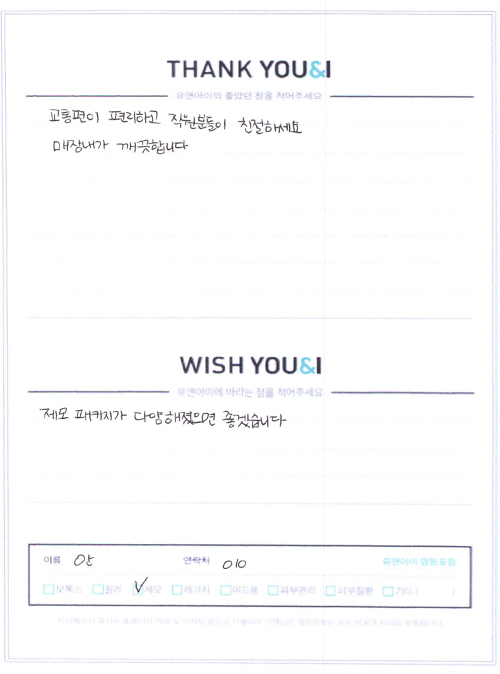 THANK YOU&I
유앤아이의 좋았던 점을 적어주세요
교통편이 편리하고 직원분들이 친절하세요
매장내가 깨끗합니다
WISH YOU&I
유앤아이에 바라는 점을 적어주세요
제모 패키지가 다양해졌으면 좋겠습니다
이름 연락처 010 유앤아이
보톡스 필러 제모 레이저 여드름 피부관리 피부질환 기타 ( )